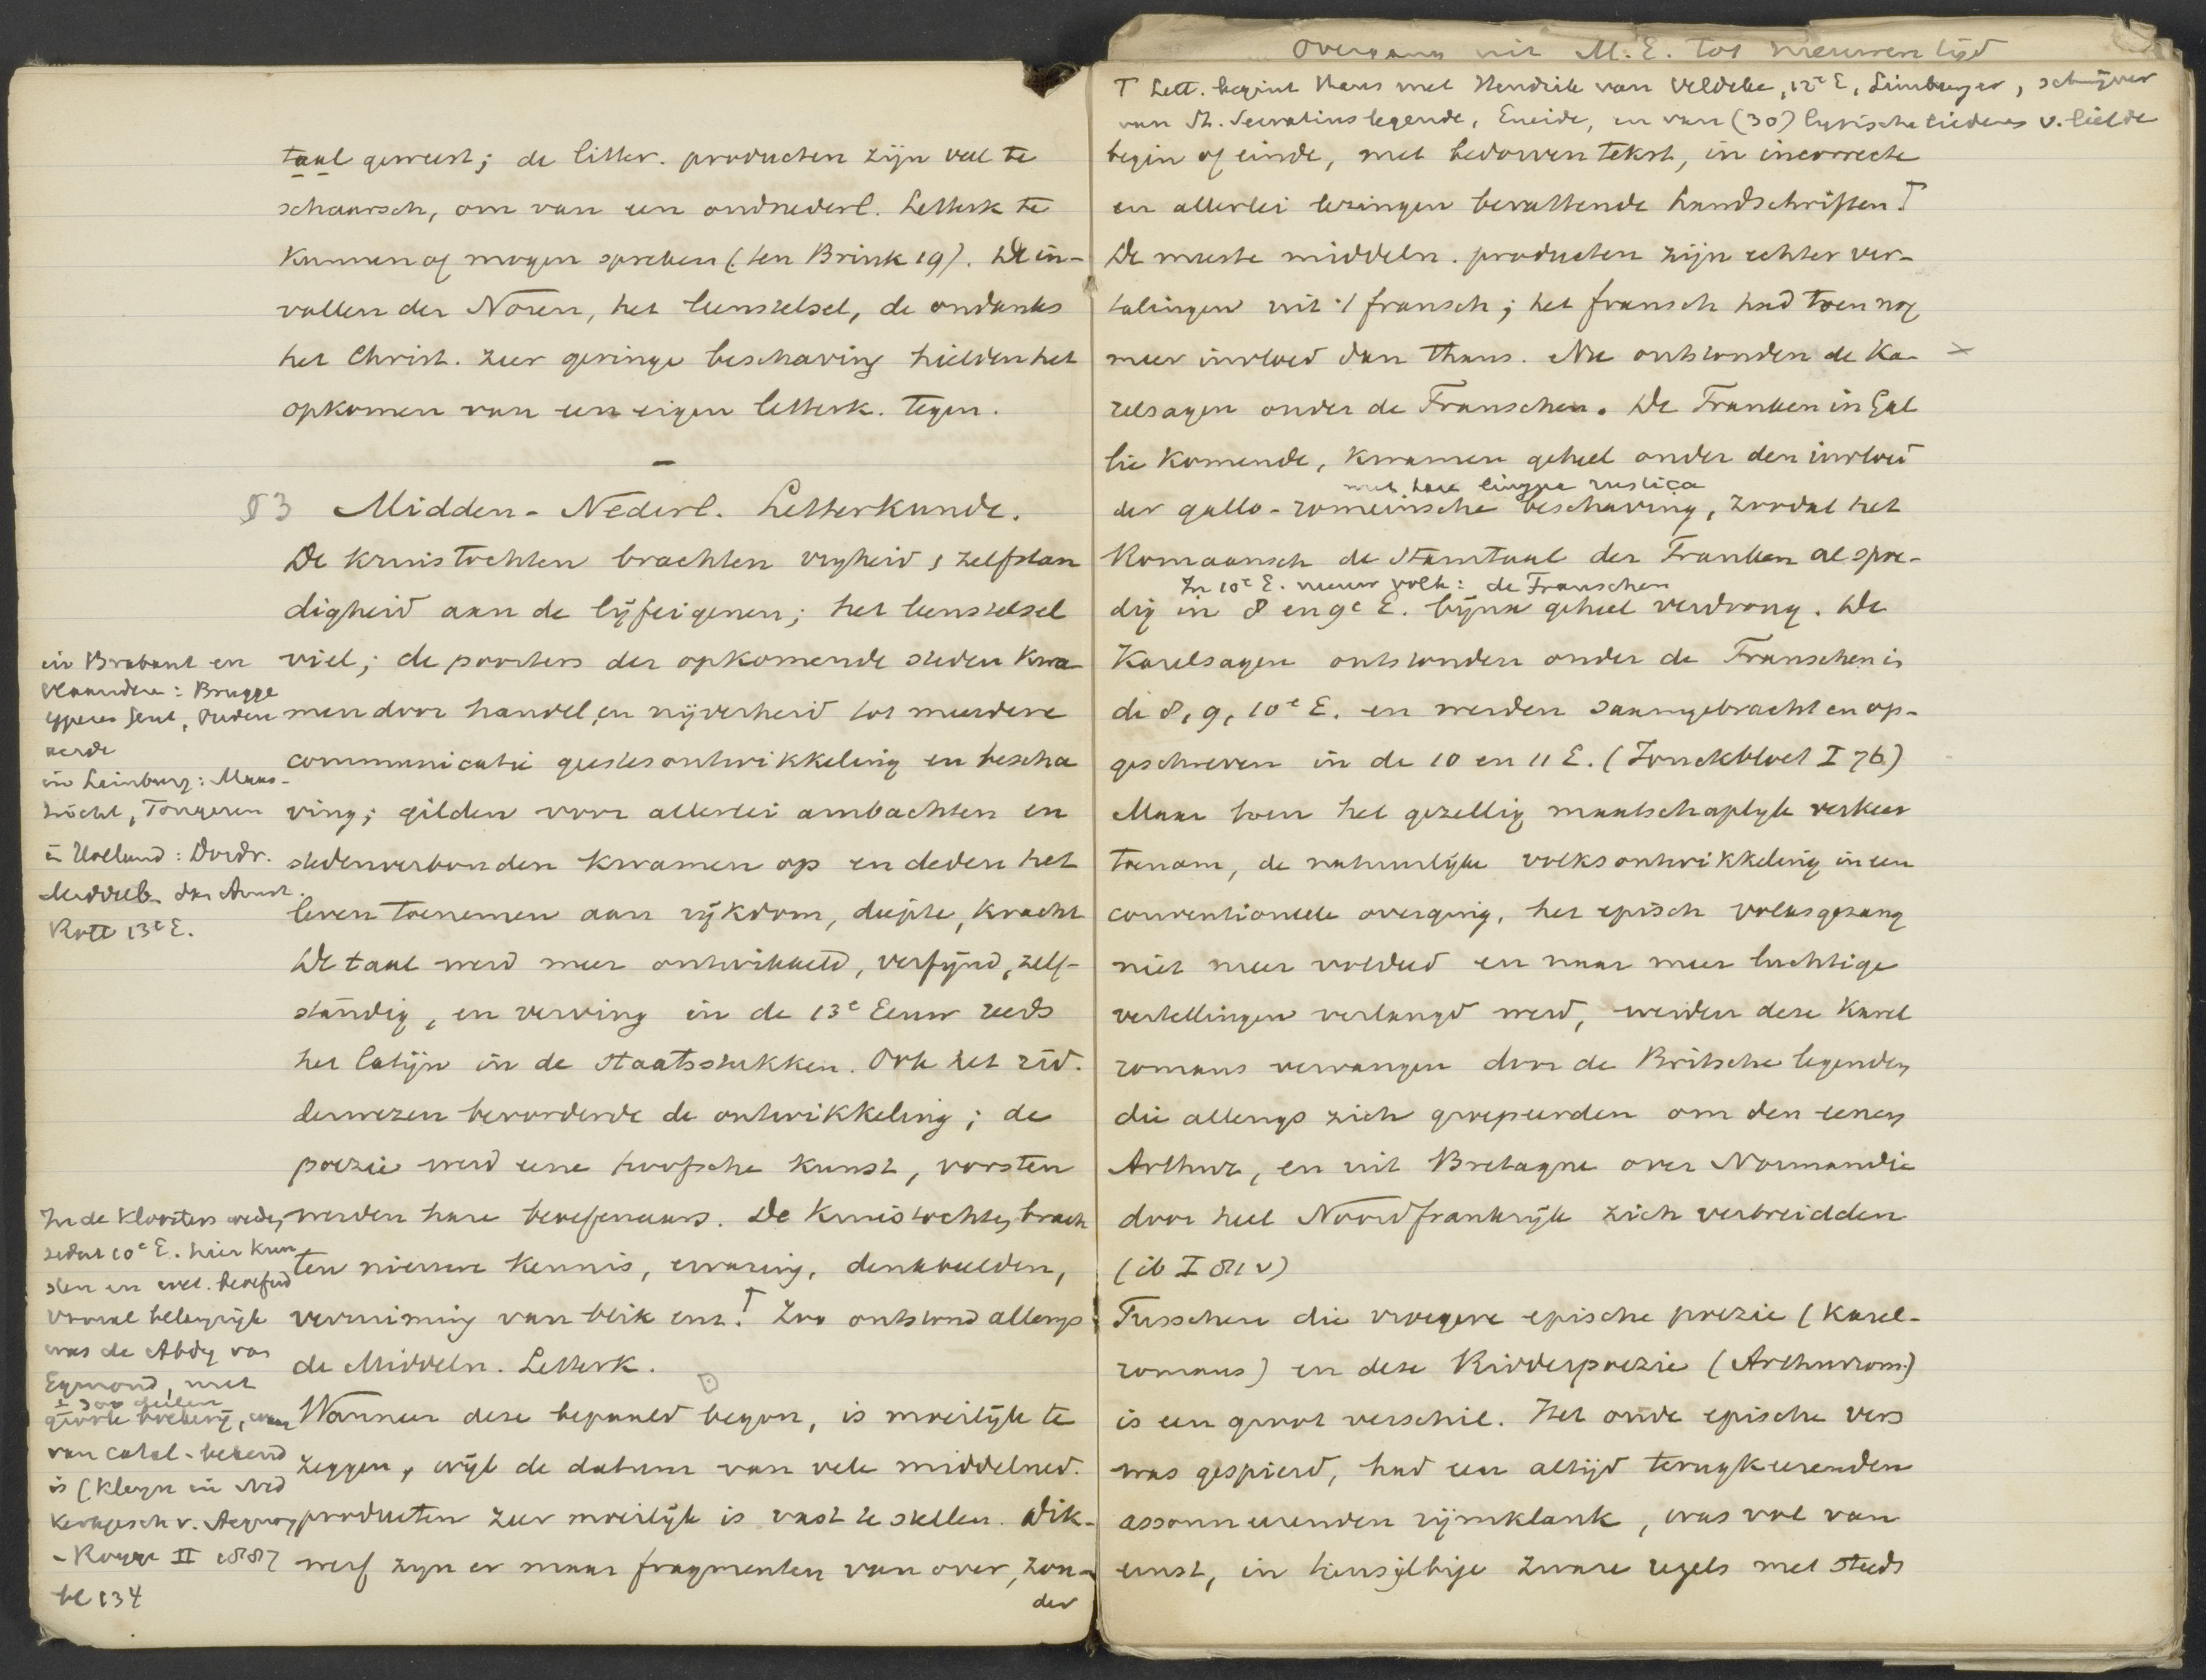 taal geweest; de litter. producten zijn veel te
schaarsch, om van een oudnederl. Letterk te
kunnen of mogen spreken (ten Brink 19). De in-
vallen der Noren, het leenstelsel, de ondanks
het Christ. zeer geringe beschaving hielden het
opkomen van een eigen letterk. tegen.
–
§3 Midden-Nederl. Letterkunde.
De kruistochten brachten vrijheid, zelfstan
digheid aan de lijfeigenen; het leenstelsel
viel; de poorters der opkomende steden kwa-
men door handel en nijverheid tot meerdere
communicatie geestesontwikkeling en bescha
ving; gilden voor allerlei ambachten en
stedenverbonden kwamen op en deden het
leven toenemen aan rijkdom, diepte, kracht
De taal werd meer ontwikkeld, verfijnd, zelf-
standig, en verving in de 13e Eeuw reeds
het latijn in de Staatsstukken. Ook het rid-
derwezen bevorderde de ontwikkeling; de
poezie werd eene hoofsche kunst, vorsten
werden hare beoefenaars. De Kruistochten brach
ten nieuwe kennis, ervaring, denkbeelden,
verruiming van blik enz.⸆ Zoo ontstond allengs
de Middeln. Letterk.
Wanneer deze bepaald begon, is moeilijk te
zeggen, wijl de datum van vele middelned.
producten zeer moeilijk is vast te stellen. Dik-
werf zijn er maar fragmenten van over, zon-
der
in Brabant en
Vlaanderen: Brugge
Yperen Gent, Ouden
aerde
in Limburg: Maas-
tricht, Tongeren
in Holland: Dordr.
Middelb. Amst.
Rott 13e E.
In de kloosters werden
sedert 10e E. hier kun
sten en wet. beoefend
vooral belangrijk
was de Abdij van
Egmond, met
± 300 deelen
groote boekerij, waar
van catal. bekend
is (Kleyn in Ned
Kerkgesch v. Acquoy
- Rogge II 1887
bl 134
Overgang uit M.E. tot nieuwen tijd
⸆ Lett. begint thans met Hendrik van Veldeke, 12e E, Limburger, schrijver
van St. Servatius legende, Eneide, en van (30) lyrische liederen v. liefde
begin of einde, met bedorven tekst, in incorrecte
en allerlei lezingen bevattende handschriften.⸆
De meeste middeln. producten zijn echter ver-
talingen uit 't fransch; het fransch had toen nog
meer invloed dan thans. Nu ontstonden de Ka- ×
relsagen onder de Franschen. De Franken in Gal
lie komende, kwamen geheel onder den invloed
met hare lingua rustica
der gallo-romeinsche beschaving, zoodat het
Romaansch de Stamtaal der Franken al spoe-
In 10e E. nieuw volk: de Franschen
dig in 8 en 9e E. bijna geheel verdrong. De
Karelsagen ontstonden onder de Franschen in
de 8, 9, 10e E. en werden saamgebracht en op-
geschreven in de 10 en 11 E. (Jonckbloet I 76)
Maar toen het gezellig maatschaplijk verkeer
toenam, de natuurlijke volksontwikkeling in een
conventioneele overging, het episch volksgezang
niet meer voldeed en naar meer luchtige
vertellingen verlangd werd, werden deze Karel
romans vervangen door de Britsche legenden
die allengs zich groepeerden om den eenen
Arthur, en uit Bretagne over Normandie
door heel Noordfrankrijk zich verbreidden
(ib I 81 v)
Tusschen die vroegere epische poezie (Karel-
romans) en deze Ridderpoezie (Arthurrom.)
is een groot verschil. Het oude epische vers
was gespierd, had een altijd terugkeerenden
assonneerenden rijmklank, was vol van
ernst, in tiensylbige zware regels met steeds